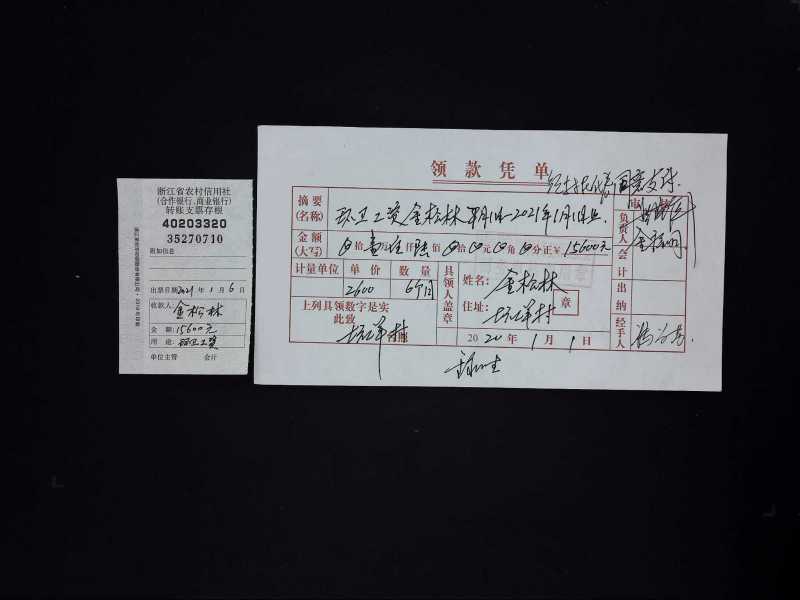 浙江省农村信用社
(合作银行、商业银行)
转账支票存根
40203320
35270710
附加信息
出票日期2021年1月6日
收款人:金松林
金 额:15600元
用 途:环卫工资
单位主管 会计
领款凭单
同意支付
摘要
(名称)
环卫工资金松林 2021年1月1日止
金额
(大写)
拾壹万伍仟陆佰拾元角分正¥15600元
计量单位 单价 数量
2600 6个月
上列具领数字是实
此致
具领人盖章
姓名:金松林
住址:
章
2020年1月1日
审核
负责人
会计
出纳
经手人